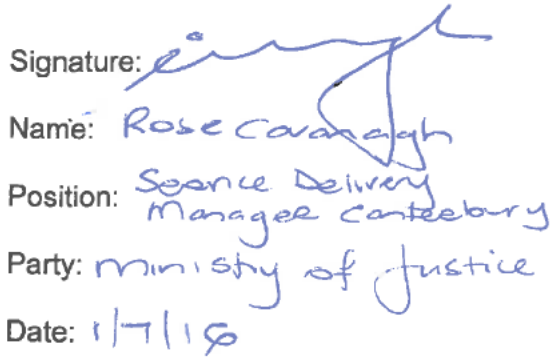 Signature:
Name: Rose Cavanagh
Position: Service Delivery
Manager Canterbury
Party: Ministry of Justice
Date: 1/7/16